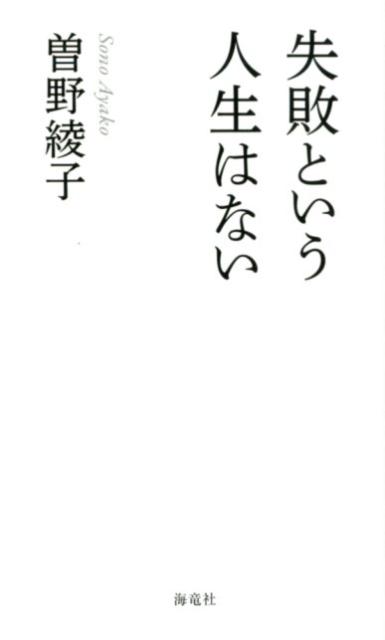 失敗という
人生はない
Sono Ayako
曽野綾子
海竜社